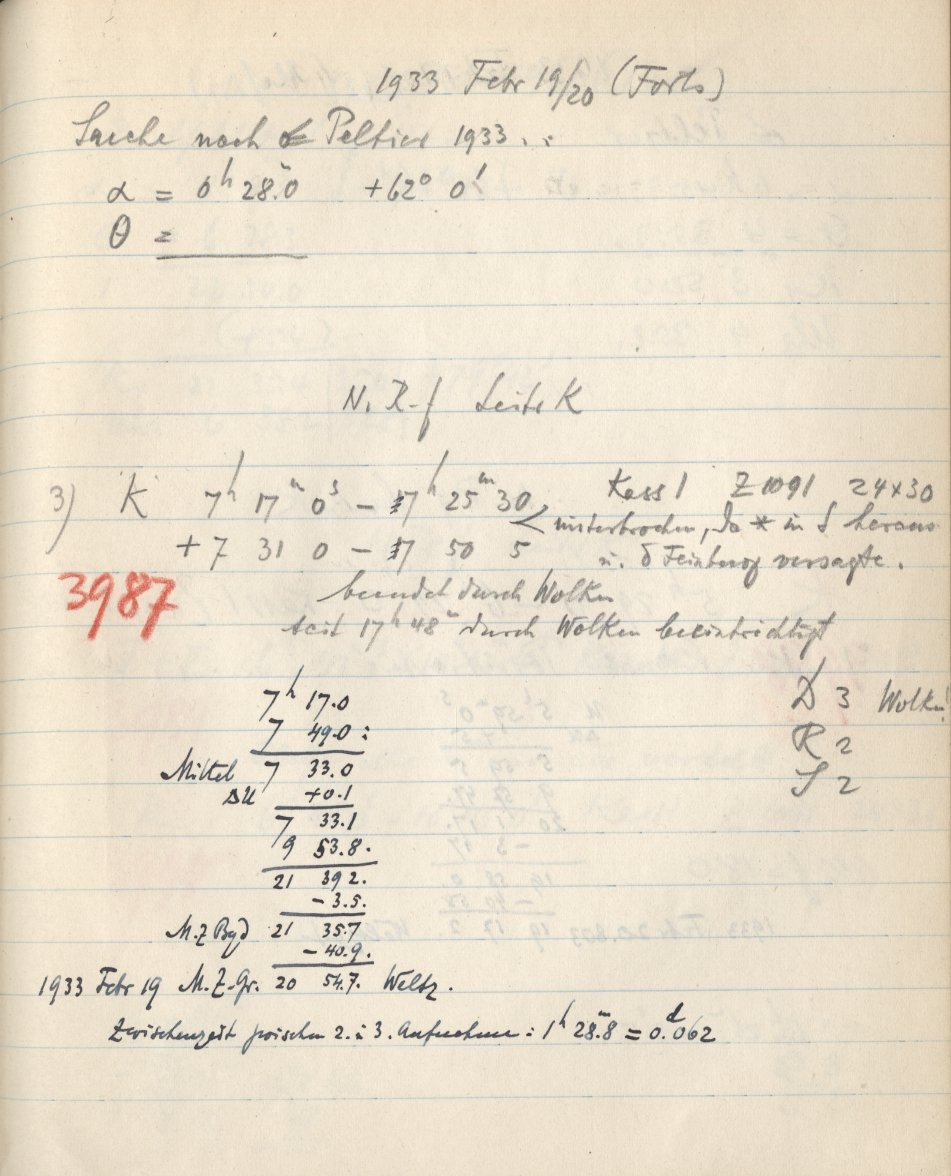 1933 Febr 19/20 (Forts)
Suche nach Peltier 1933 . .
α = 6h 28.m0 +62° 0'
θ =
N. R-f Seite K
3) K 7h 17m 0s – 7h 25m 30 Kass 1 Z 1091 24x30
unterbrochen, da * in δ heraus
+ 7 31 0 – 7 50 5 u. δ Feinbewg versagte.
3987 beendet durch Wolken
seit 17h 48m durch Wolken beeinträchtigt
7h 17.0 D 3 Wolken
7 49.0 : R 2
Mittel 7 33.0 S 2
ΔU +0.1
7 33.1
9 53.8.
21 39 2.
– 3.5.
M.Z Bgd 21 35.7
– 40.9.
1933 Febr 19 M.Z.Gr. 20 54.7. Weltz.
Zwischenzeit zwischen 2. u 3. Aufnahme : 1h 28.m8 = 0.d062